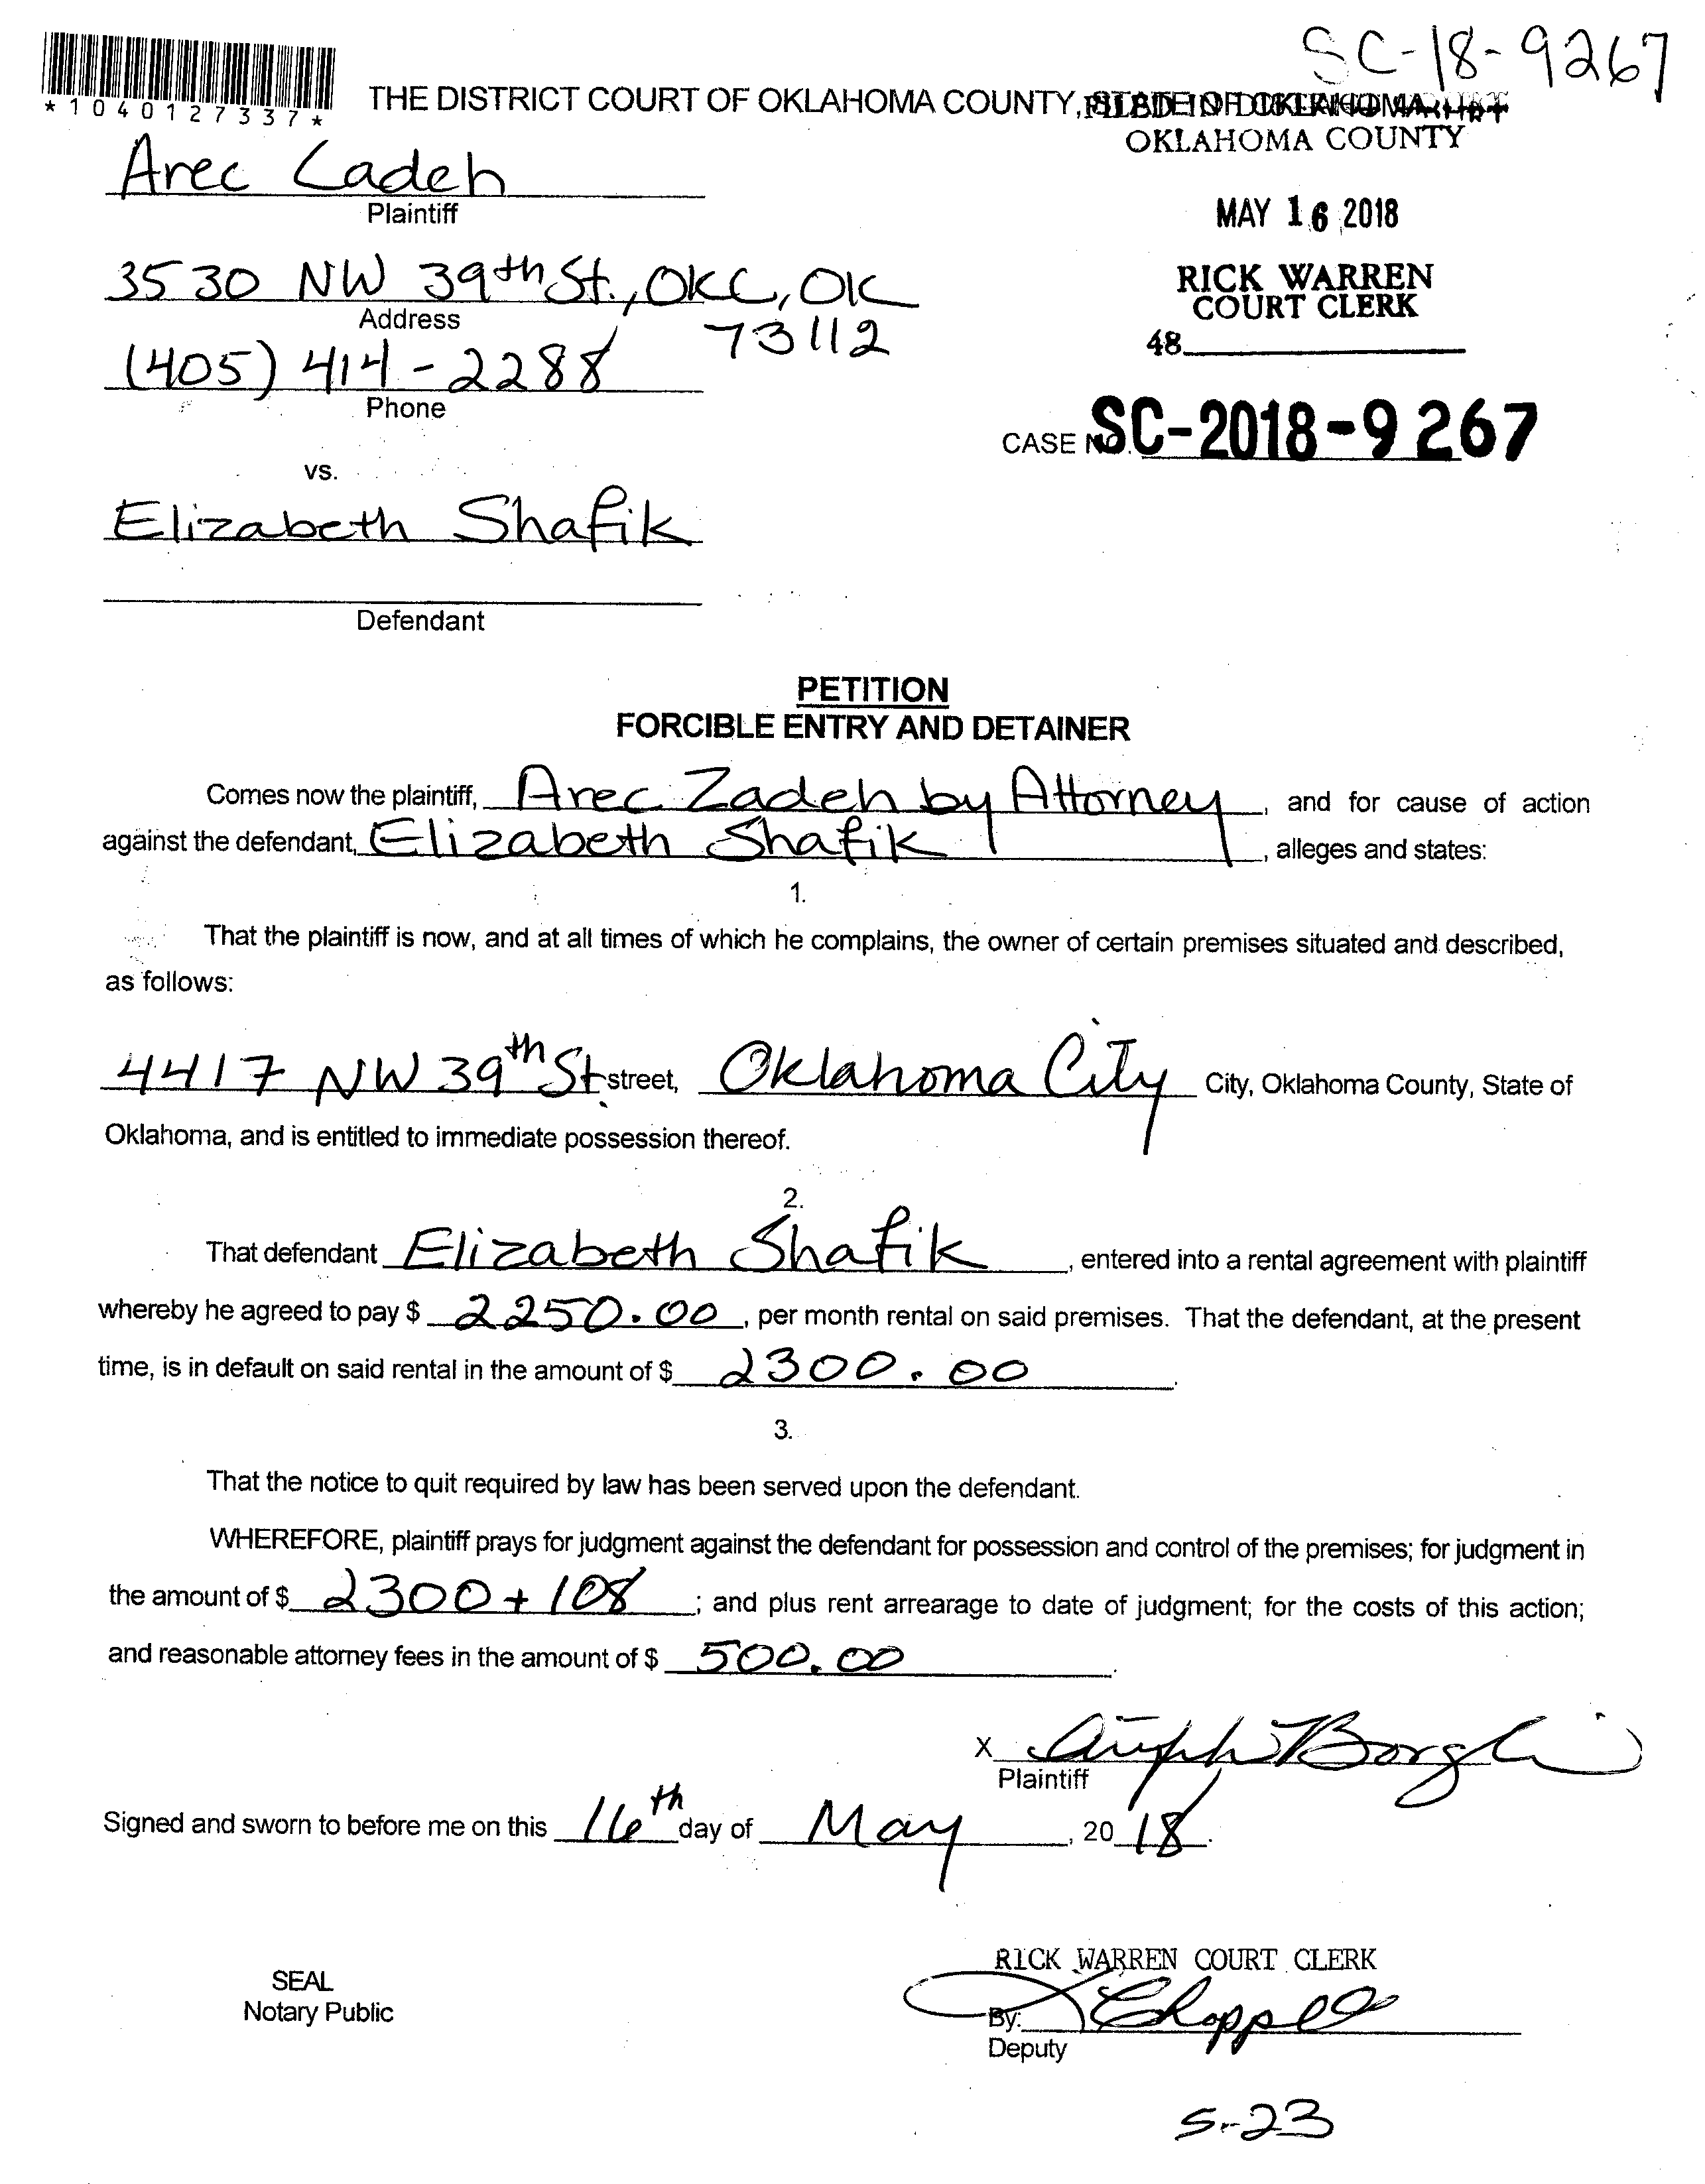 SC-18-9267
*1040127337*
THE DISTRICT COURT OF OKLAHOMA COUNTY, STATE OF OKLAHOMA
FILED IN DISTRICT COURT
OKLAHOMA COUNTY
Arec Zadeh
Plaintiff
MAY 16 2018
3530 NW 39th St., OKC, OK
73112
Address
RICK WARREN
COURT CLERK
48
(405) 414-2288
Phone
CASE NO. SC-2018-9267
vs.
Elizabeth Shafik
Defendant
PETITION
FORCIBLE ENTRY AND DETAINER
Comes now the plaintiff, Arec Zadeh by Attorney, and for cause of action
against the defendant, Elizabeth Shafik, alleges and states:
1.
That the plaintiff is now, and at all times of which he complains, the owner of certain premises situated and described,
as follows:
4417 NW 39th St. street, Oklahoma City City, Oklahoma County, State of
Oklahoma, and is entitled to immediate possession thereof.
2.
That defendant Elizabeth Shafik, entered into a rental agreement with plaintiff
whereby he agreed to pay $ 2250.00, per month rental on said premises. That the defendant, at the present
time, is in default on said rental in the amount of $ 2300.00.
3.
That the notice to quit required by law has been served upon the defendant.
WHEREFORE, plaintiff prays for judgment against the defendant for possession and control of the premises; for judgment in
the amount of $ 2300 + 108; and plus rent arrearage to date of judgment; for the costs of this action;
and reasonable attorney fees in the amount of $ 500.00.
X
Plaintiff
Signed and sworn to before me on this 16th day of May, 2018.
RICK WARREN COURT CLERK
SEAL
Notary Public
By: Chappell
Deputy
5-23